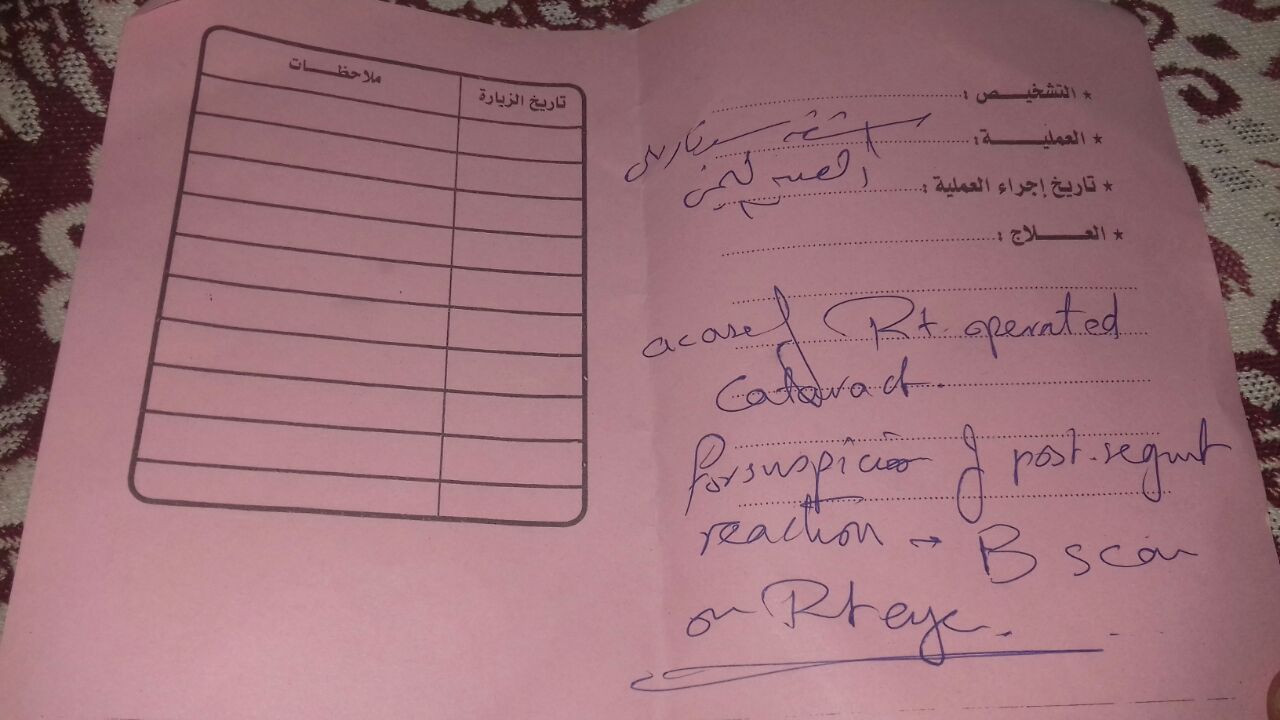 * التشخيص :
* العملية :
أشعة سونار على
* تاريخ إجراء العملية :
العين اليمنى
* العلاج :
a case of Rt. operated
Cataract.
for suspicion of post. segment
reaction → B scan
on Rt eye.
تاريخ الزيارة
ملاحظات